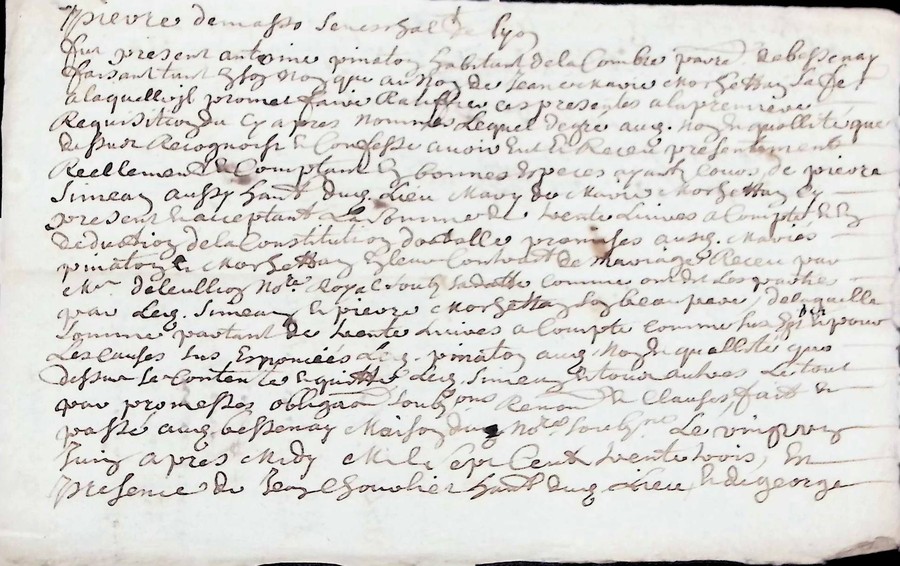 pierre demasso Seneschal de Lyon
fut present antoine pinaton habitant de la Combe parre. de bessenay
faisant tant En son Nom que au Nom de Jeanne Marie Morgetton Sa fe.
a laquelle il promet faire Ratiffier ces presentes a la premiere
Requisition du Cy apres Nommés Lequel de gré aud. Nom En quallité que
dessus Recognoist & Confesse avoir Eut et Receu presentement
Reellement & Comptant En bonnes Especes ayant Cours, de pierre
Simean aussy habt. dud. Lieu Mary de Marie Morgetton Cy
present & acceptant La Somme de trente Livres a Compte & En
deduction de la Constitution dotalle promises ausd. Mariés
pinaton & Morgetton En leur Contract de Mariage Receu par
Me. deleullion Nore. Royal Soubz Sadatte Comme ont dit Les parties
par Led. Simean & pierre Morgetton Son beau pere, de laquelle
Somme partant de trente Livres a Compte Comme Sus Est dit & pour
Les Causes Sus Exponcées Led. pinaton aud. Nom En quallité que
dessus Se Contente & quitte Led. Simean & tous autres Le tout
par promesses obligaon. Soubzons Renon. & Clauses, fait &
passé aud. bessenay Maison du Nore. Soubzne. Le vingt
Juin apres Midy Mil Sept Cent trente trois, En
Presence de Jean Chevolier habt. dud. Lieu, & de george